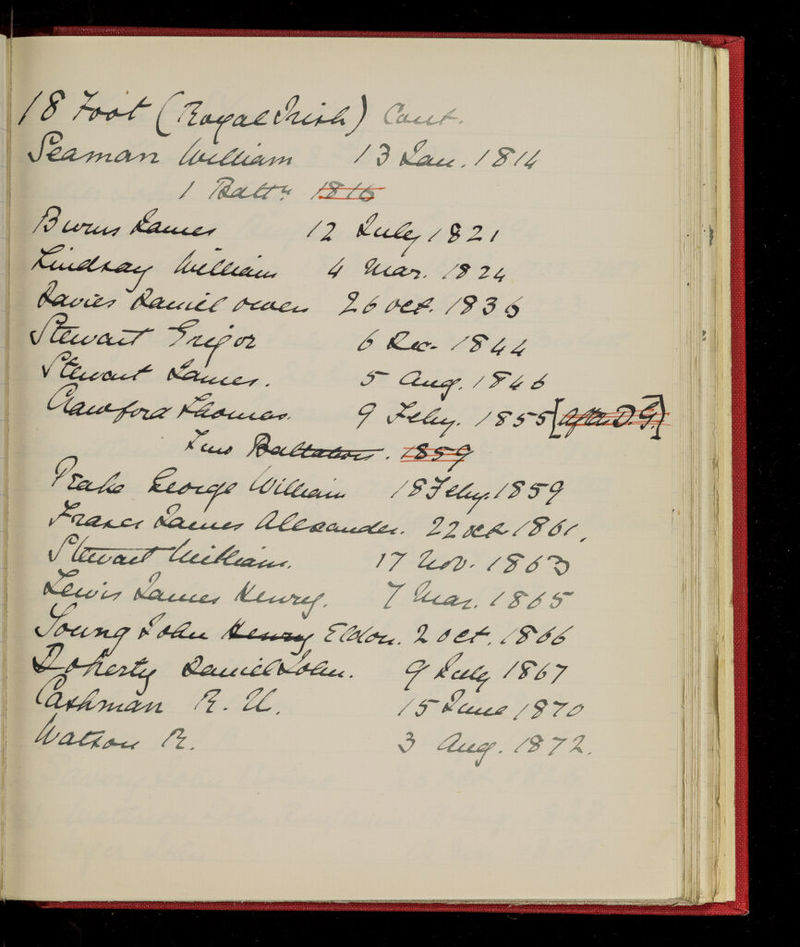 18 Foot (Royal Irish) Cont.
Seaman William 13 Jan. 1814
1 Battn 1816
Burns James 12 July 1821
Lindsay William 4 Mar. 1824
Davies Daniel Owen 26 Oct. 1836
Stewart Grigor 6 Dec. 1844
Stewart James. 5 Aug. 1846
Crawford Thomas. 9 Feby. 1855 [after D.G.]
Two Battalions. 1859
Peake George William 18 Feby. 1859
Fraser James Alexander. 22 Oct 1861.
Stewart William. 17 Nov. 1863
Lewis James Henry. 7 Mar. 1865
Young John Henry Eldon. 2 Oct. 1866
Doherty Daniel John. 9 July 1867
Cashman R. U. 15 June 1870
Watson R. 3 Aug. 1872.